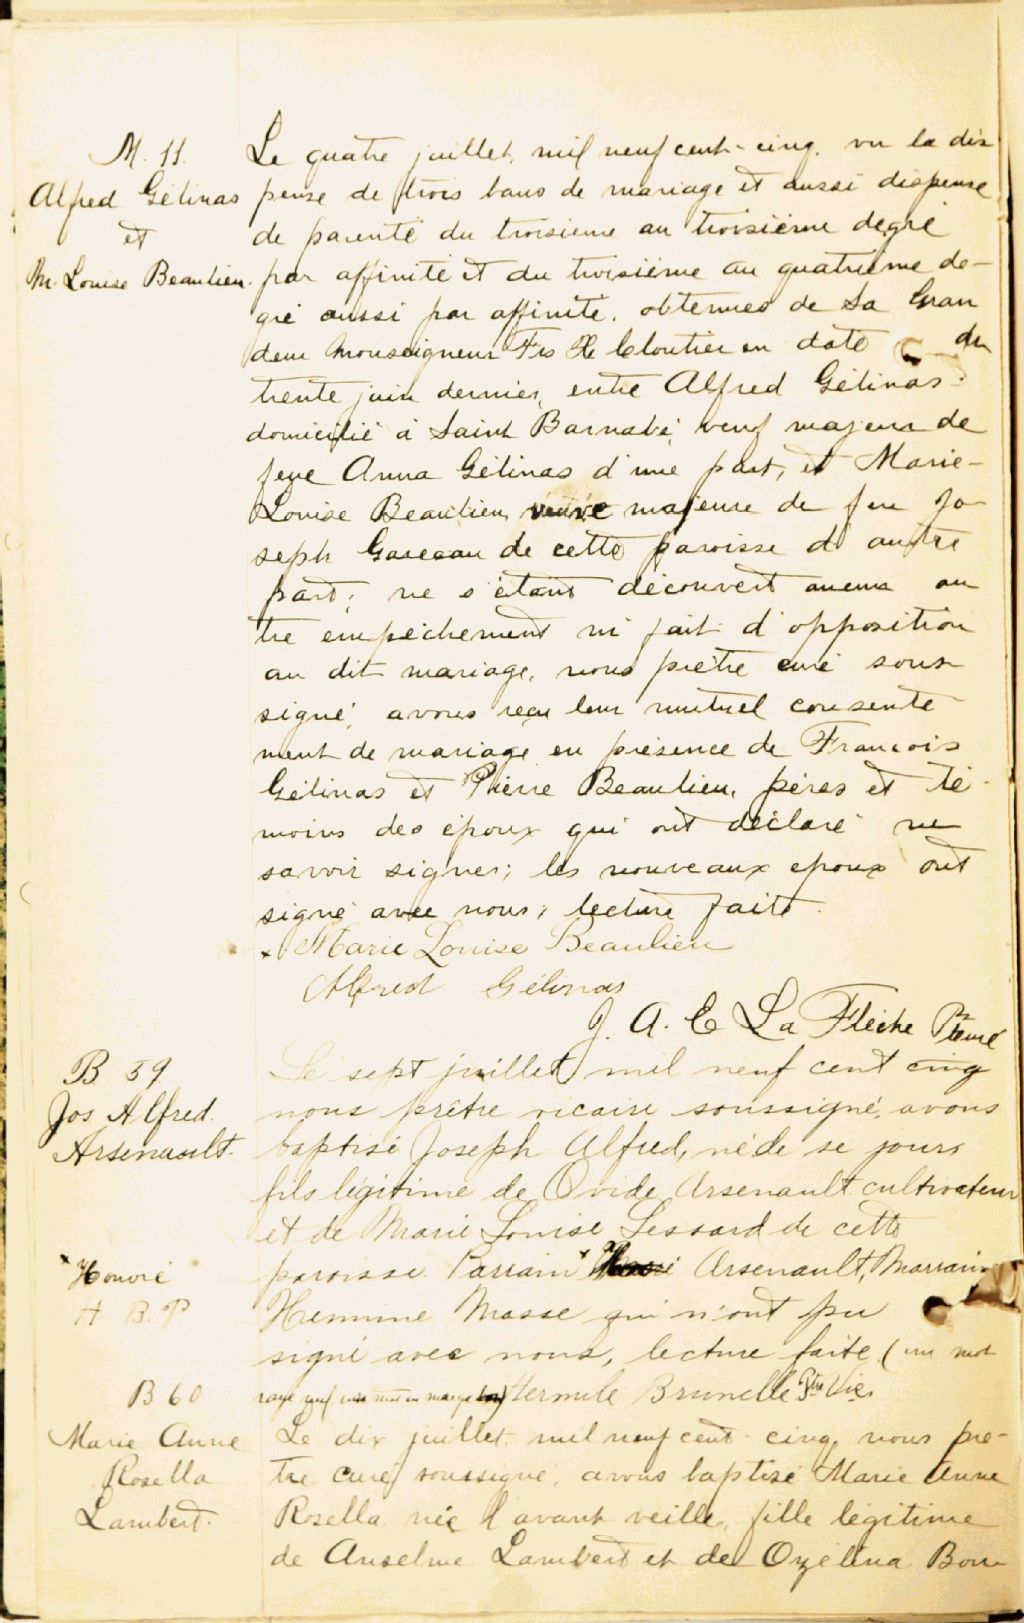 M. 11.
Alfred Gélinas
et
M. Louise Beaulieu.
Le quatre juillet, mil neuf cent-cinq, vu la dis
pense de trois bans de mariage et aussi dispense
de parenté du troisième au troisième degré
par affinité et du troisième au quatrième de-
gré aussi par affinité, obtenues de Sa Gran
deur Monseigneur Frs X Cloutier en date du
trente juin dernier, entre Alfred Gélinas
domicilié à Saint Barnabé, veuf majeur de
feue Anna Gélinas d'une part, et Marie-
Louise Beaulieu veuve majeure de feu Jo
seph Garceau de cette paroisse d'autre
part; ne s'étant découvert aucun au
tre empêchement ni fait d'opposition
au dit mariage, nous prêtre curé sous
signé, avons reçu leur mutuel consente
ment de mariage en présence de François
Gélinas et Pierre Beaulieu, pères et té-
moins des époux qui ont déclaré ne
savoir signer; les nouveaux époux ont
signé avec nous; lecture faite.
x Marie Louise Beaulieu
Alfred Gélinas
J. A. E La Flèche Ptre curé
B 59
Jos Alfred.
Arsenault.
Le sept juillet mil neuf cent cinq
nous prêtre vicaire soussigné, avons
baptisé Joseph Alfred, né de se jour,
fils légitime de Ovide Arsenault cultivateur
et de Marie Louise Lessard de cette
paroisse. Parrain x Arsenault, Marraine
x Honoré
H B. P
Hermine Masse qui n'ont pu
signé avec nous, lecture faite (un mot
rayé nul un mis en marge bon) Hermile Brunelle Ptre Vic.
B 60
Marie Anne
Rosella
Lambert.
Le dix juillet, mil neuf cent-cinq, nous prê-
tre curé soussigné, avons baptisé Marie Anne
Rosella née l'avant veille, fille légitime
de Anselme Lambert et de Ozélina Bou